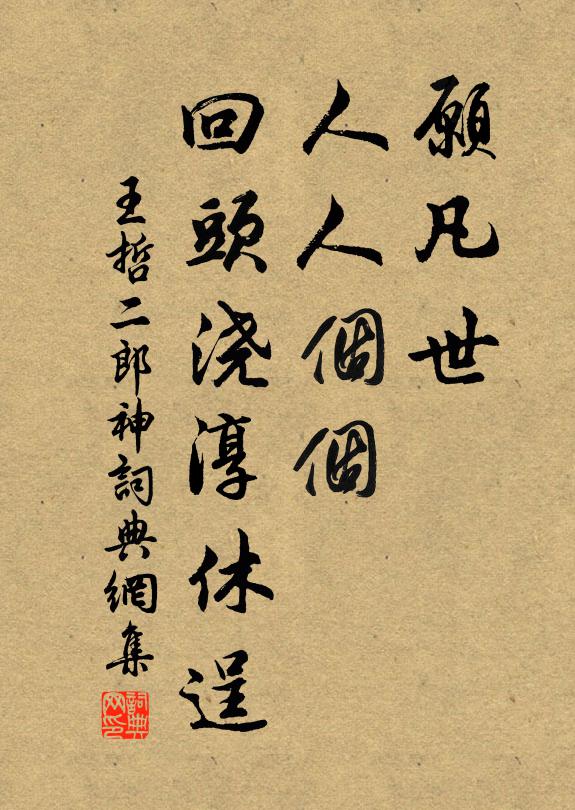 願凡世
人人個個
回頭浇淳休逞
王哲二郎神詞典網集
詞典网印